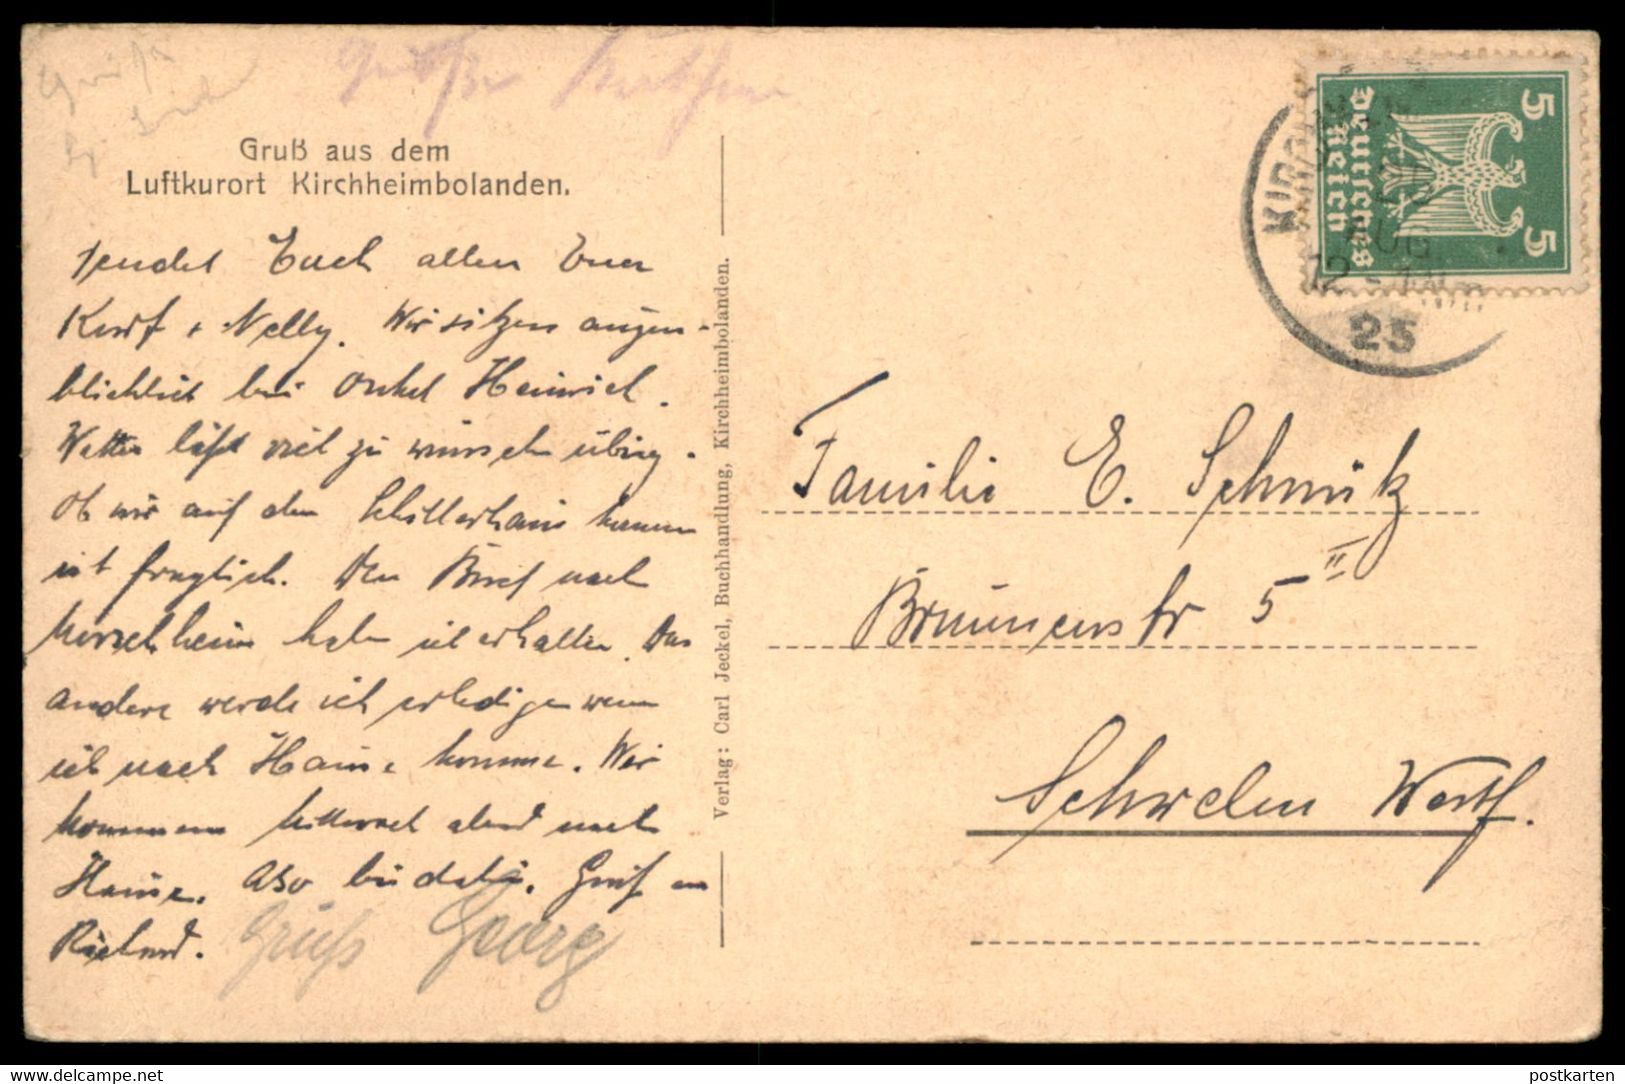 Grüße
Gruß aus dem
Luftkurort Kirchheimbolanden.
sendet Euch allen Euer
Kurt + Nelly. Wir sitzen augen-
blicklich bei Onkel Heinrich.
Wetter läßt viel zu wünschen übrig.
Ob wir auf den Schillerhain kommen
ist fraglich. Den Brief nach
Morschheim habe ich erhalten. Das
andere werde ich erledigen wenn
ich nach Hause komme. Wir
kommen Mittwoch abend nach
Hause. Also bis dahin. Gruß an
Richard. Gruß Georg
Verlag: Carl Jeckel, Buchhandlung, Kirchheimbolanden.
5 5
Deutsches
Reich
KIRCH
AUG
12-1N
25
Familie E. Schmitz
Brunnenstr 5 II
Schwelm Westf.
postkarten
www.delcampe.net